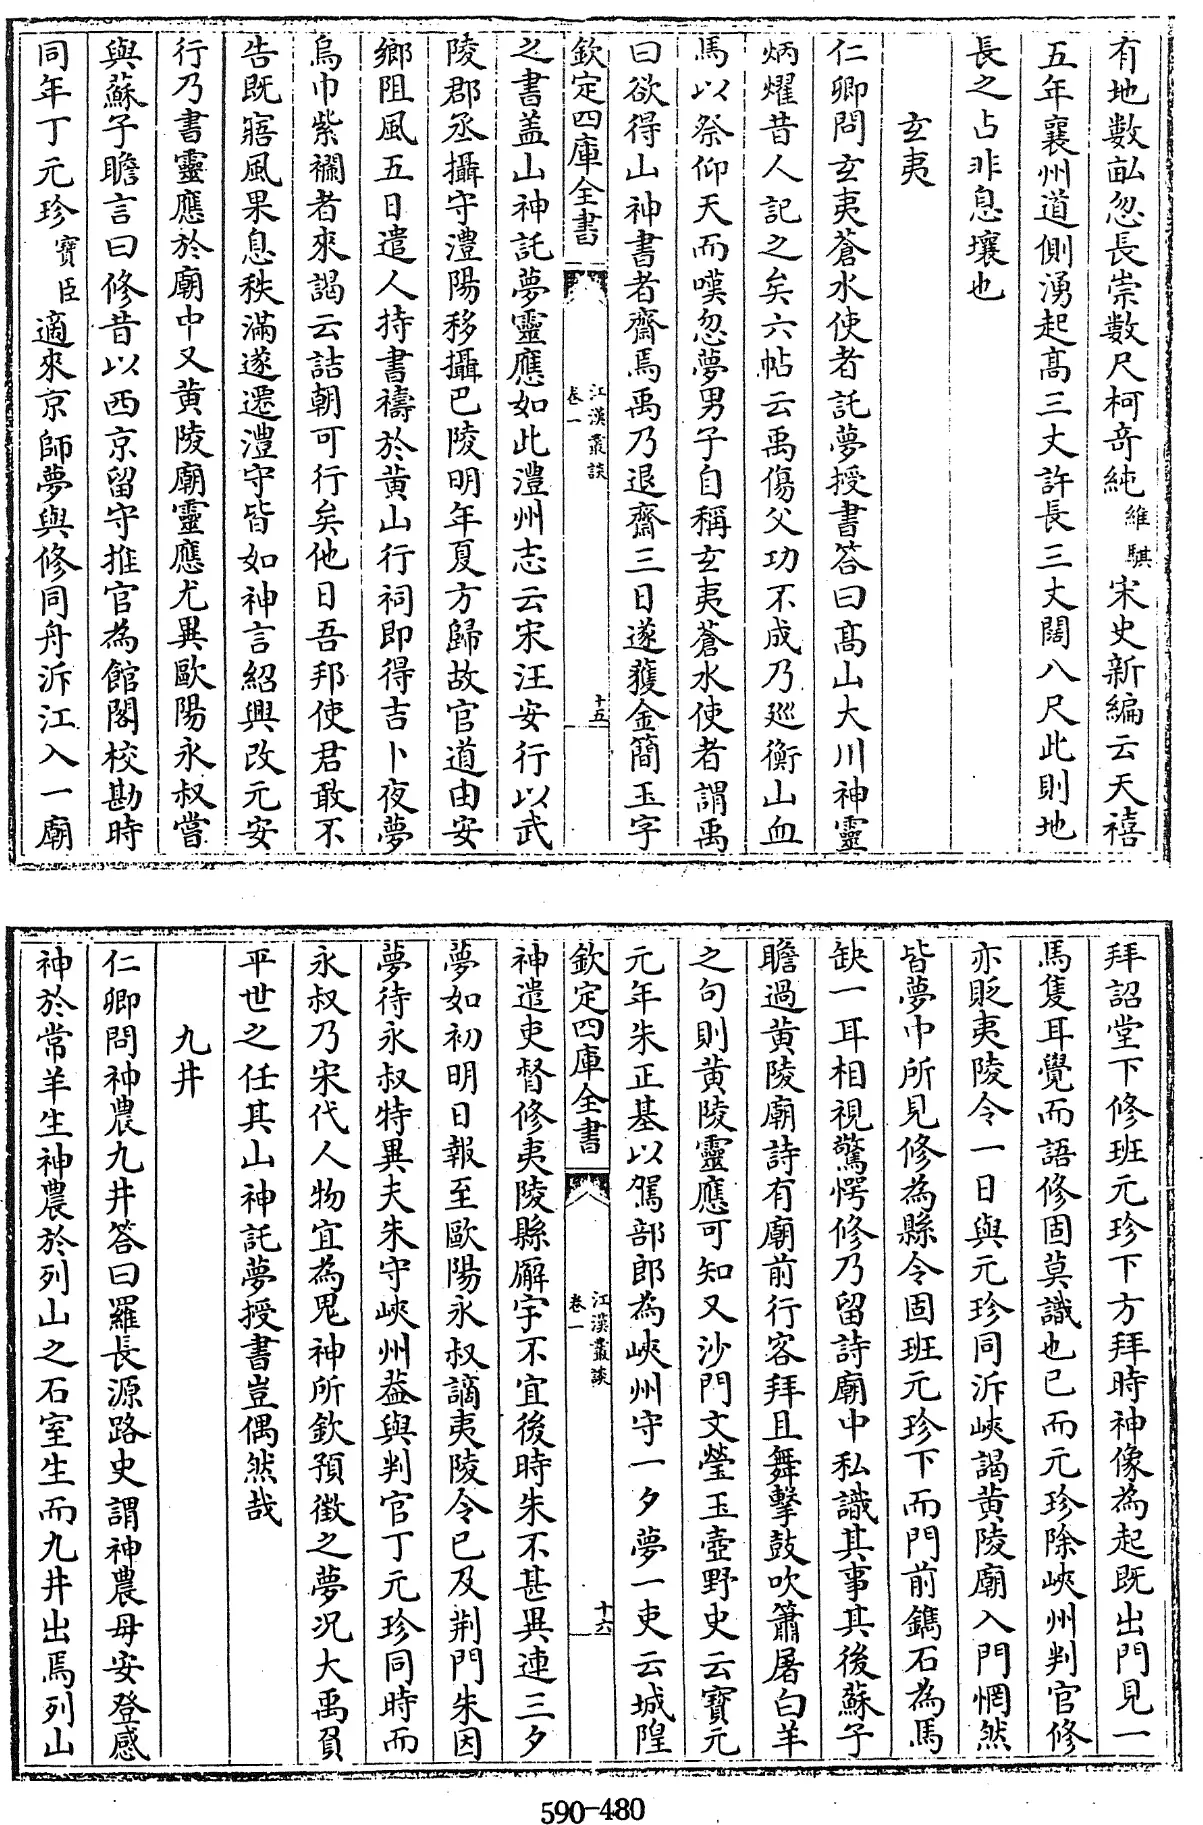 有地數畝忽長崇數尺柯竒純維騏宋史新編云天禧
五年襄州道側湧起髙三丈許長三丈闊八尺此則地
長之占非息壤也
玄夷
仁卿問玄夷蒼水使者託夢授書答曰髙山大川神靈
炳燿昔人記之矣六帖云禹傷父功不成乃廵衡山血
馬以祭仰天而嘆忽夢男子自稱玄夷蒼水使者謂禹
曰欲得山神書者齋焉禹乃退齋三日遂獲金簡玉字
欽定四庫全書
江漢叢談
卷一
十五
之書盖山神託夢靈應如此澧州志云宋汪安行以武
陵郡丞攝守澧陽移攝巴陵明年夏方歸故官道由安
鄉阻風五日遣人持書禱於黄山行祠即得吉卜夜夢
烏巾紫襴者來謁云詰朝可行矣他日吾邦使君敢不
告既寤風果息秩滿遂遷澧守皆如神言紹興改元安
行乃書靈應於廟中又黄陵廟靈應尤異歐陽永叔嘗
與蘇子瞻言曰修昔以西京留守推官為館閣校勘時
同年丁元珍寶臣適來京師夢與修同舟泝江入一廟
拜詔堂下修班元珍下方拜時神像為起既出門見一
馬隻耳覺而語修固莫識也已而元珍除峽州判官修
亦貶夷陵令一日與元珍同泝峽謁黄陵廟入門惘然
皆夢中所見修為縣令固班元珍下而門前鐫石為馬
缺一耳相視驚愕修乃留詩廟中私識其事其後蘇子
瞻過黄陵廟詩有廟前行客拜且舞擊鼓吹簫屠白羊
之句則黄陵靈應可知又沙門文瑩玉壺野史云寶元
元年朱正基以駕部郎為峽州守一夕夢一吏云城隍
欽定四庫全書
江漢叢談
卷一
十六
神遣吏督修夷陵縣廨宇不宜後時朱不甚異連三夕
夢如初明日報至歐陽永叔謫夷陵令已及荆門朱因
夢待永叔特異夫朱守峽州葢與判官丁元珍同時而
永叔乃宋代人物宜為鬼神所欽預徵之夢况大禹負
平世之任其山神託夢授書豈偶然哉
九井
仁卿問神農九井答曰羅長源路史謂神農母安登感
神於常羊生神農於列山之石室生而九井出焉列山
590-480